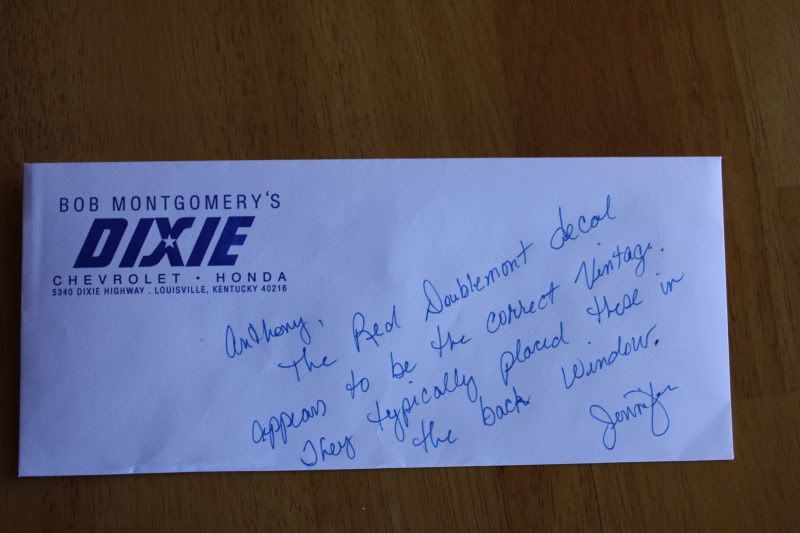 BOB MONTGOMERY'S
DIXIE
CHEVROLET · HONDA
5340 DIXIE HIGHWAY . LOUISVILLE, KENTUCKY 40216
Anthony,
The Red Doublemont decal
appears to be the correct Vintage.
They typically placed these in
the back window.
Jennifer